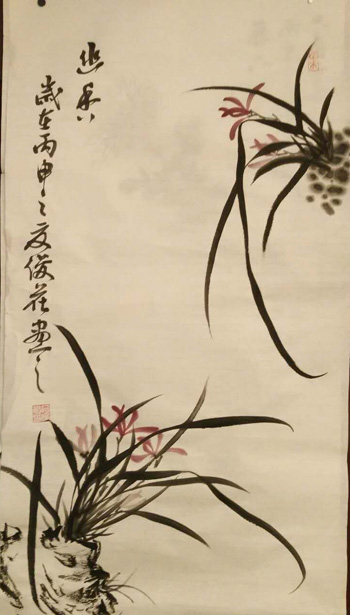 幽香
歲在丙申之夏俊莊畫之